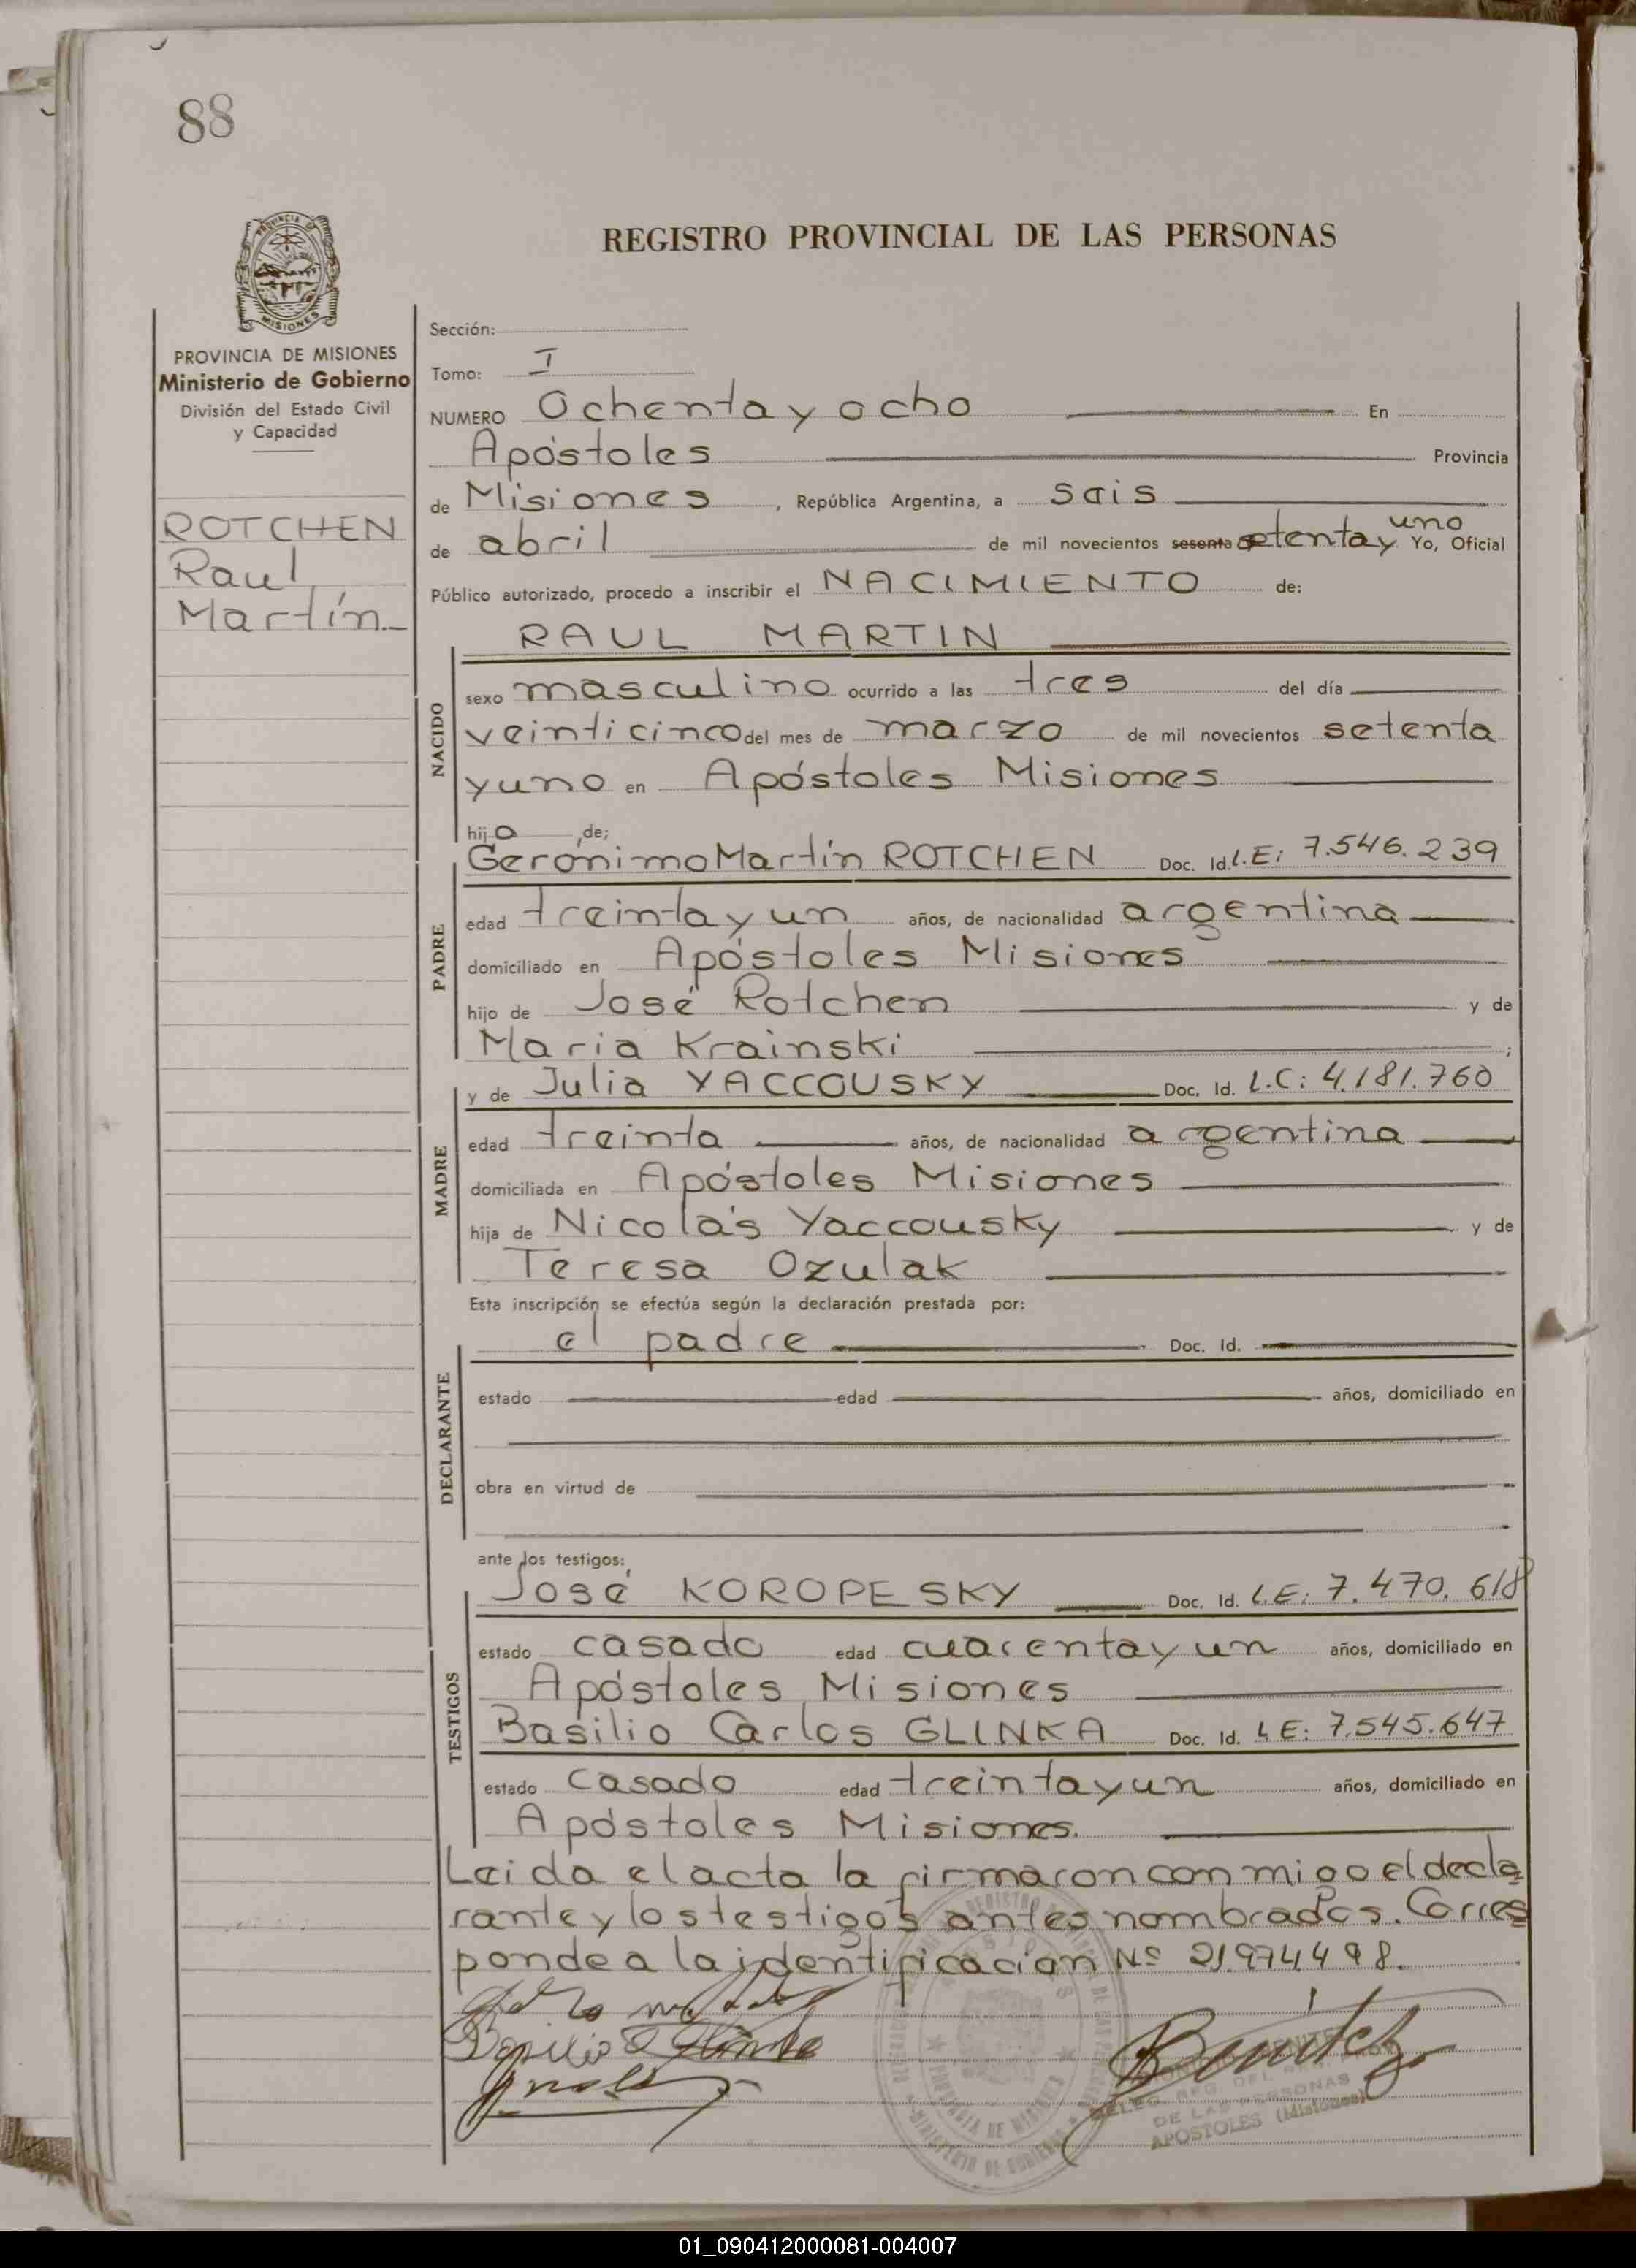 88
PROVINCIA DE
MISIONES
REGISTRO PROVINCIAL DE LAS PERSONAS
PROVINCIA DE MISIONES
Ministerio de Gobierno
División del Estado Civil
y Capacidad
ROTCHEN
Raul
Martín
Sección:
Tomo: I
NUMERO Ochenta y ocho En
Apóstoles Provincia
de Misiones, República Argentina, a seis
de abril de mil novecientos sesenta setenta y uno Yo, Oficial
Público autorizado, procedo a inscribir el NACIMIENTO de:
RAUL MARTIN
NACIDO
sexo masculino ocurrido a las tres del día
veinticinco del mes de marzo de mil novecientos setenta
y uno en Apóstoles Misiones
hijo de;
PADRE
Gerónimo Martín ROTCHEN Doc. Id. L.E: 7.546.239
edad treinta y un años, de nacionalidad argentina
domiciliado en Apóstoles Misiones
hijo de José Rotchen y de
Maria Krainski ;
MADRE
y de Julia YACCOUSKY Doc. Id. L.C: 4.181.760
edad treinta años, de nacionalidad argentina
domiciliada en Apóstoles Misiones
hija de Nicolás Yaccousky y de
Teresa Ozulak
Esta inscripción se efectúa según la declaración prestada por:
DECLARANTE
el padre Doc. Id.
estado edad años, domiciliado en
obra en virtud de
ante los testigos:
TESTIGOS
José KOROPESKY Doc. Id. L.E: 7.470.618
estado casado edad cuarenta y un años, domiciliado en
Apóstoles Misiones
Basilio Carlos GLINKA Doc. Id. L E: 7.545.647
estado casado edad treinta y un años, domiciliado en
Apóstoles Misiones.
Leida el acta la firmaron conmigo el decla=
rante y los testigos antes nombrados. Corres=
ponde a la identificación Nº 21.974.498.
Basilio C Glinka
Benitez
DE LAS PERSONAS
APOSTOLES (Misiones)
01_090412000081-004007